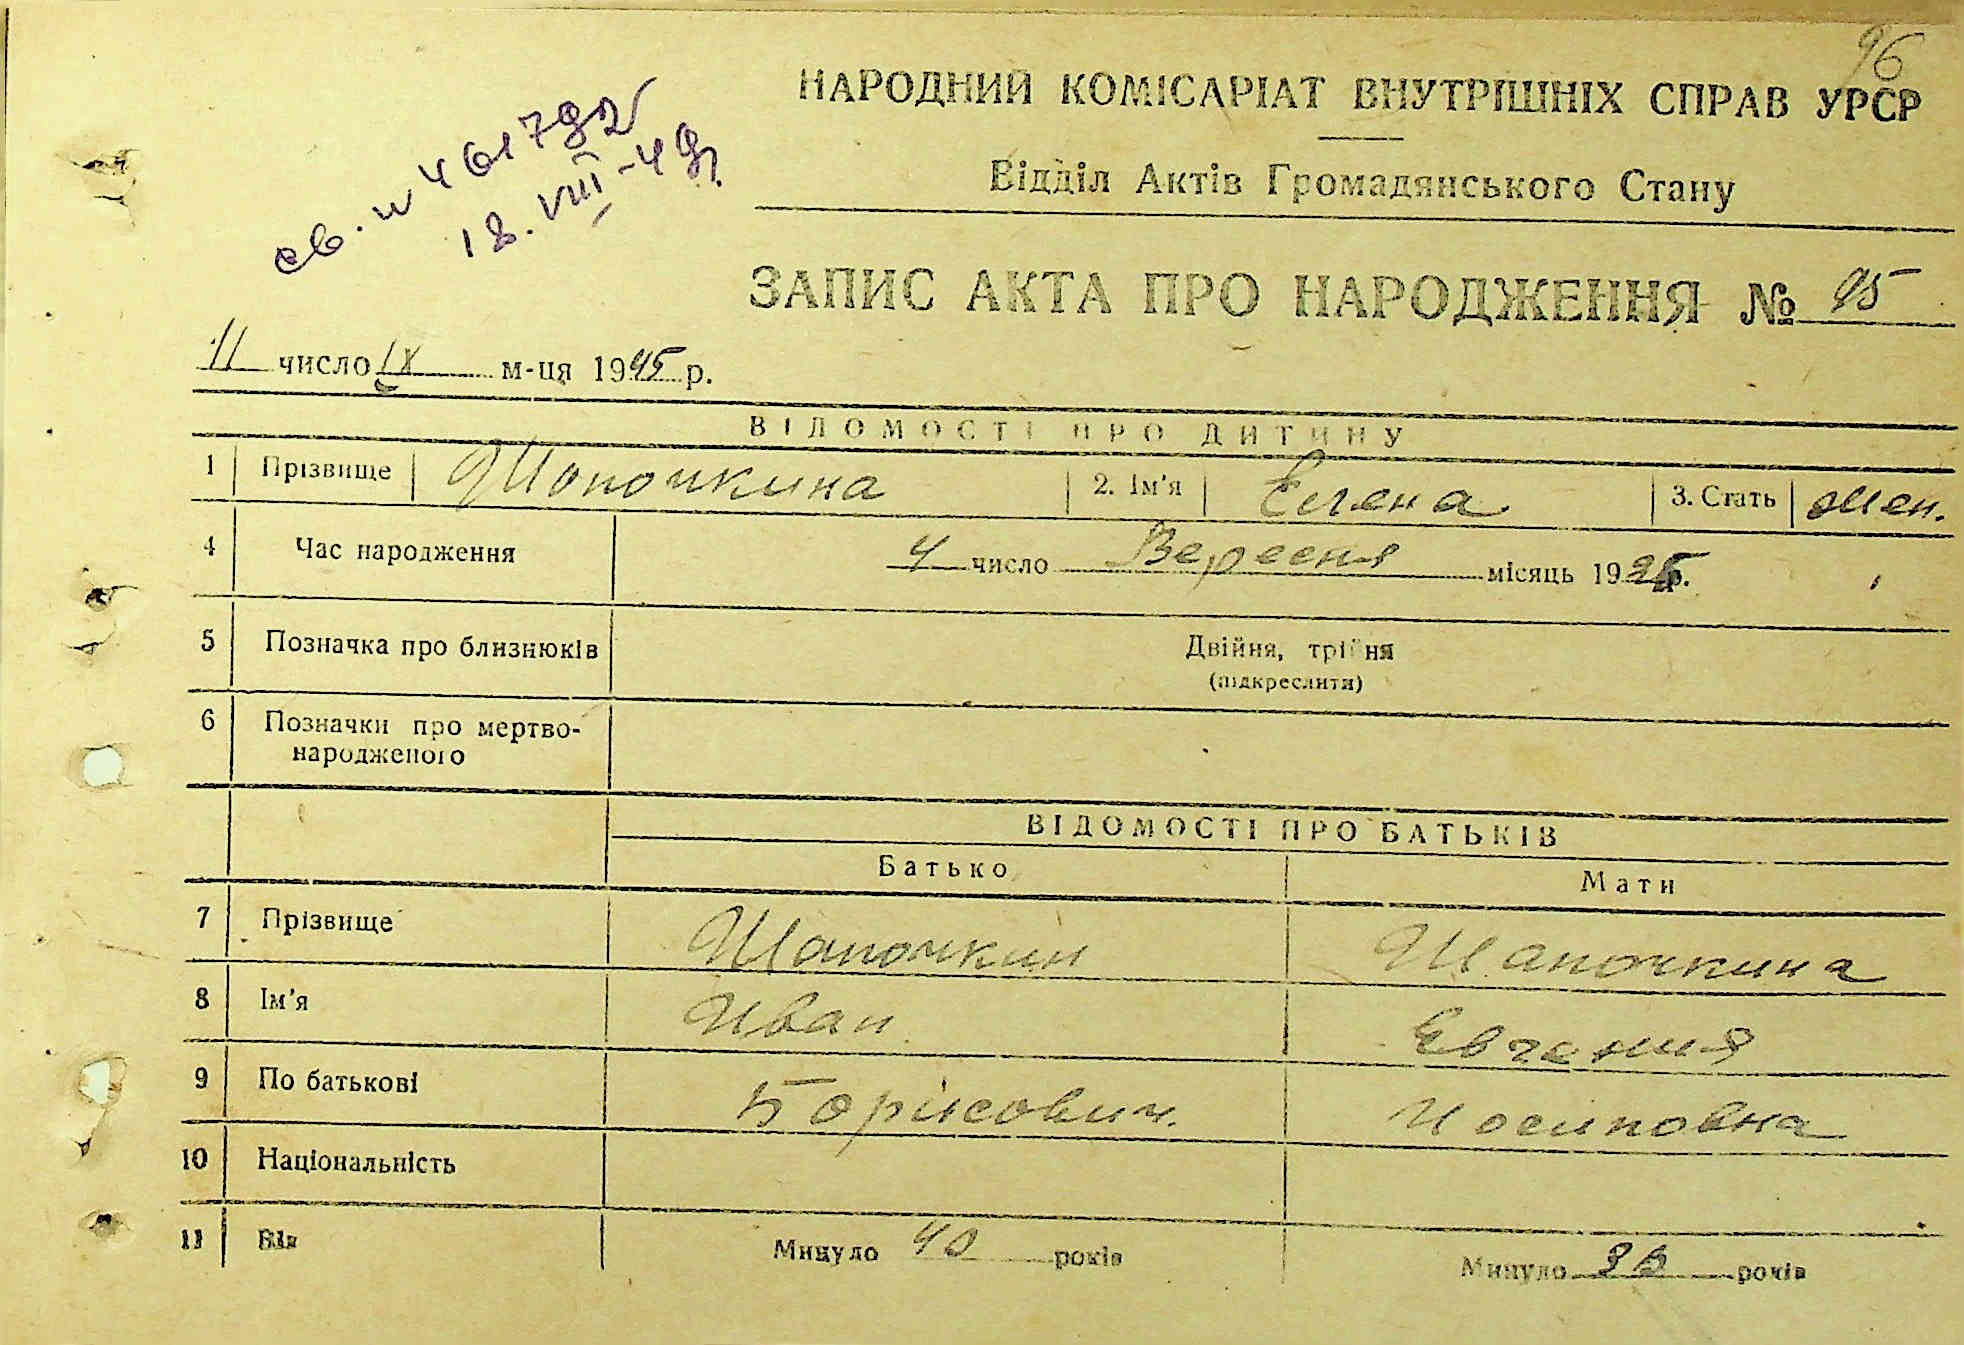 96
НАРОДНИЙ КОМІСАРІАТ ВНУТРІШНІХ СПРАВ УРСР
Відділ Актів Громадянського Стану
св. н 461792
18.VIII-49р.
ЗАПИС АКТА ПРО НАРОДЖЕННЯ № 95
11 число IX м-ця 1945 р.
ВІДОМОСТІ ПРО ДИТИНУ
1 Прізвище Шапочкина 2. Ім'я Елена 3. Стать жен.
4 Час народження 4 число Вересня місяць 19 р.
5 Позначка про близнюків Двійня, трійня
(підкреслити)
6 Позначки про мертво-
народженого
ВІДОМОСТІ ПРО БАТЬКІВ
Батько Мати
7 Прізвище Шапочкин Шапочкина
8 Ім'я Иван Евгения
9 По батькові Борисович. Иосиповна
10 Національність
11 Вік Минуло 40 років Минуло років